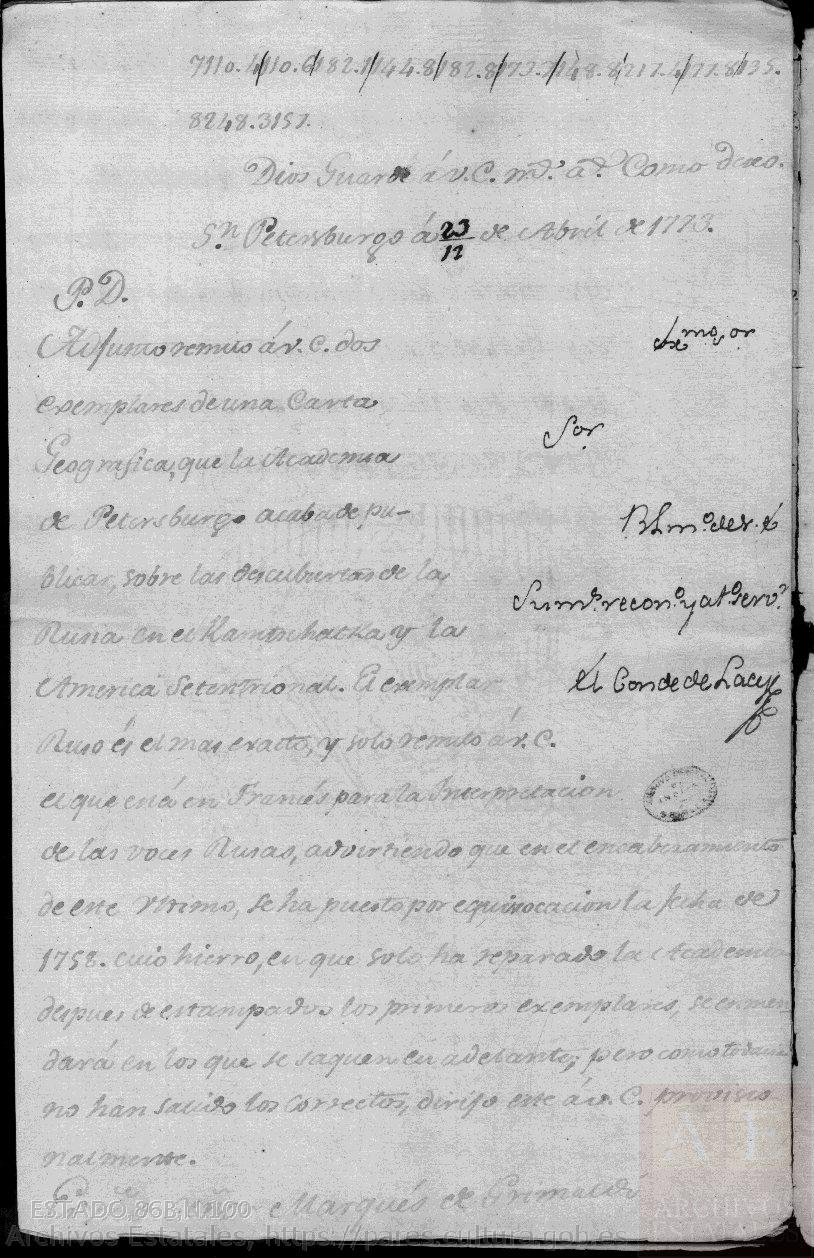 7110.4/110.6/182.1/144.8/182.8/173.3/148.8/217.4/171.8/135.
8248.3157.
Dios Guarde á V.E. m.s a.s Como deseo.
S.n Petersburgo á 23/12 de Abril de 1773.
P.D.
Adjunto remito á V.E. dos
exemplares de una Carta
Geografica, que la Academia
de Petersburgo acaba de pu-
blicar, sobre las descubiertas de la
Rusia en el Kamtschatka y la
America Setentrional. El exemplar
Ruso és el mas exacto, y solo remito á V.E.
el que está en Francés para la Interpretacion
de las voces Rusas, advirtiendo que en el encabezamiento
de este ultimo, se ha puesto por equivocacion la fecha de
1758. cuio hierro, en que solo ha reparado la Academia
despues de estampados los primeros exemplares, se enmen
dará en los que se saquen en adelante; pero como todavia
no han salido los correctos, dirijo este á V.E. provisio
nalmente.
Ex.mo S.or
Sor
B L m.o de V.E.
Su m.s recon.o y at.o serv.r
El Conde de Lacy
Marqués de Grimaldi
ESTADO,86B,N.100
Archivos Estatales, https://pares.cultura.gob.es
AE
ARCHIVOS
ESTATALES